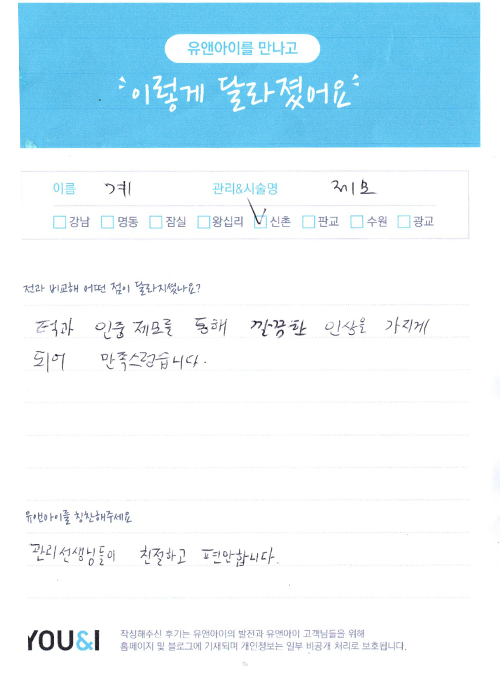 유앤아이를 만나고
이렇게 달라졌어요
이름 계 관리&시술명 제모
강남 명동 잠실 왕십리 신촌 판교 수원 광교
전과 비교해 어떤 점이 달라지셨나요?
턱과 인중 제모를 통해 깔끔한 인상을 가지게
되어 만족스럽습니다.
유앤아이를 칭찬해주세요
관리선생님들이 친절하고 편안합니다.
YOU&I
작성해주신 후기는 유앤아이의 발전과 유앤아이 고객님들을 위해
홈페이지 및 블로그에 기재되며 개인정보는 일부 비공개 처리로 보호됩니다.